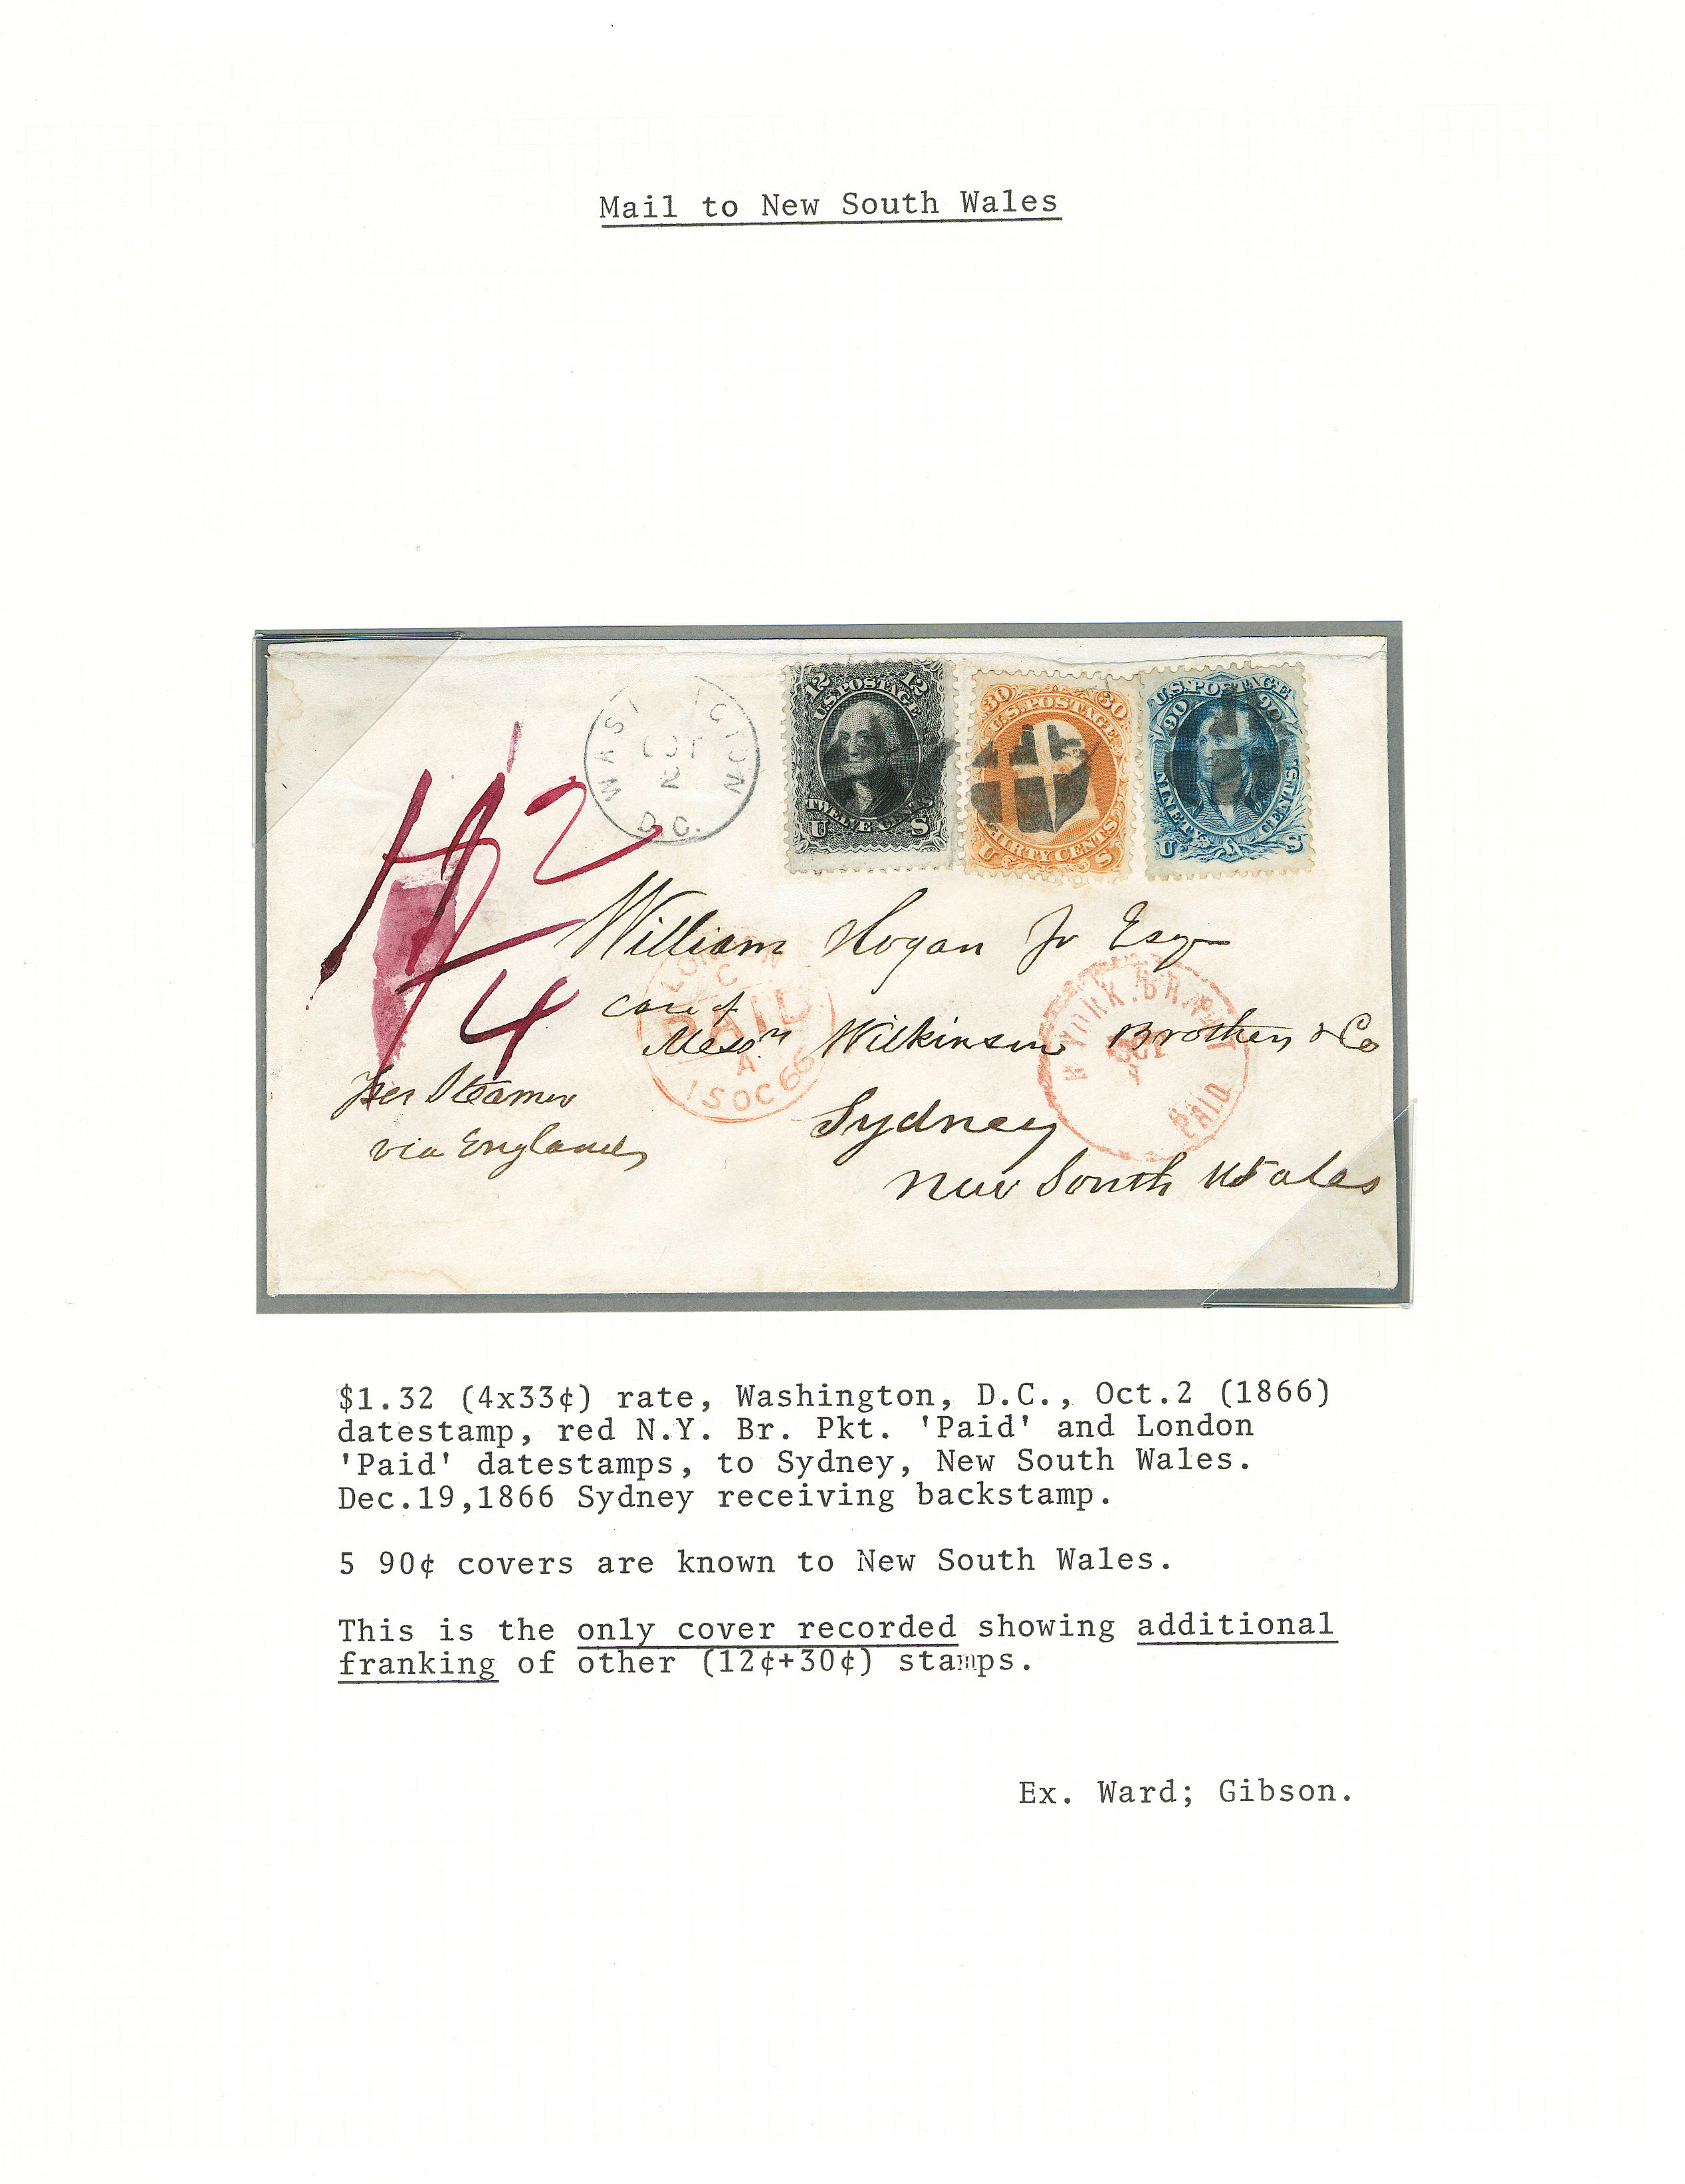 Mail to New South Wales
WAS GTON
OCT
2
D.C.
12 12
U.S. POSTAGE
TWELVE CENTS
U S
30 30
U.S. POSTAGE
THIRTY CENTS
U S
U.S. POSTAGE
90 90
NINETY CENTS
U S
12
4
William Hogan Jr Esqr
Care of
Messrs Wilkinson Brothers & Co
Sydney
New South Wales
Per Steamer
via England
LONDON
C
PAID
A
15 OC 66
N. YORK. BR. PKT
OCT
PAID
$1.32 (4x33¢) rate, Washington, D.C., Oct.2 (1866)
datestamp, red N.Y. Br. Pkt. 'Paid' and London
'Paid' datestamps, to Sydney, New South Wales.
Dec.19,1866 Sydney receiving backstamp.
5 90¢ covers are known to New South Wales.
This is the only cover recorded showing additional
franking of other (12¢+30¢) stamps.
Ex. Ward; Gibson.